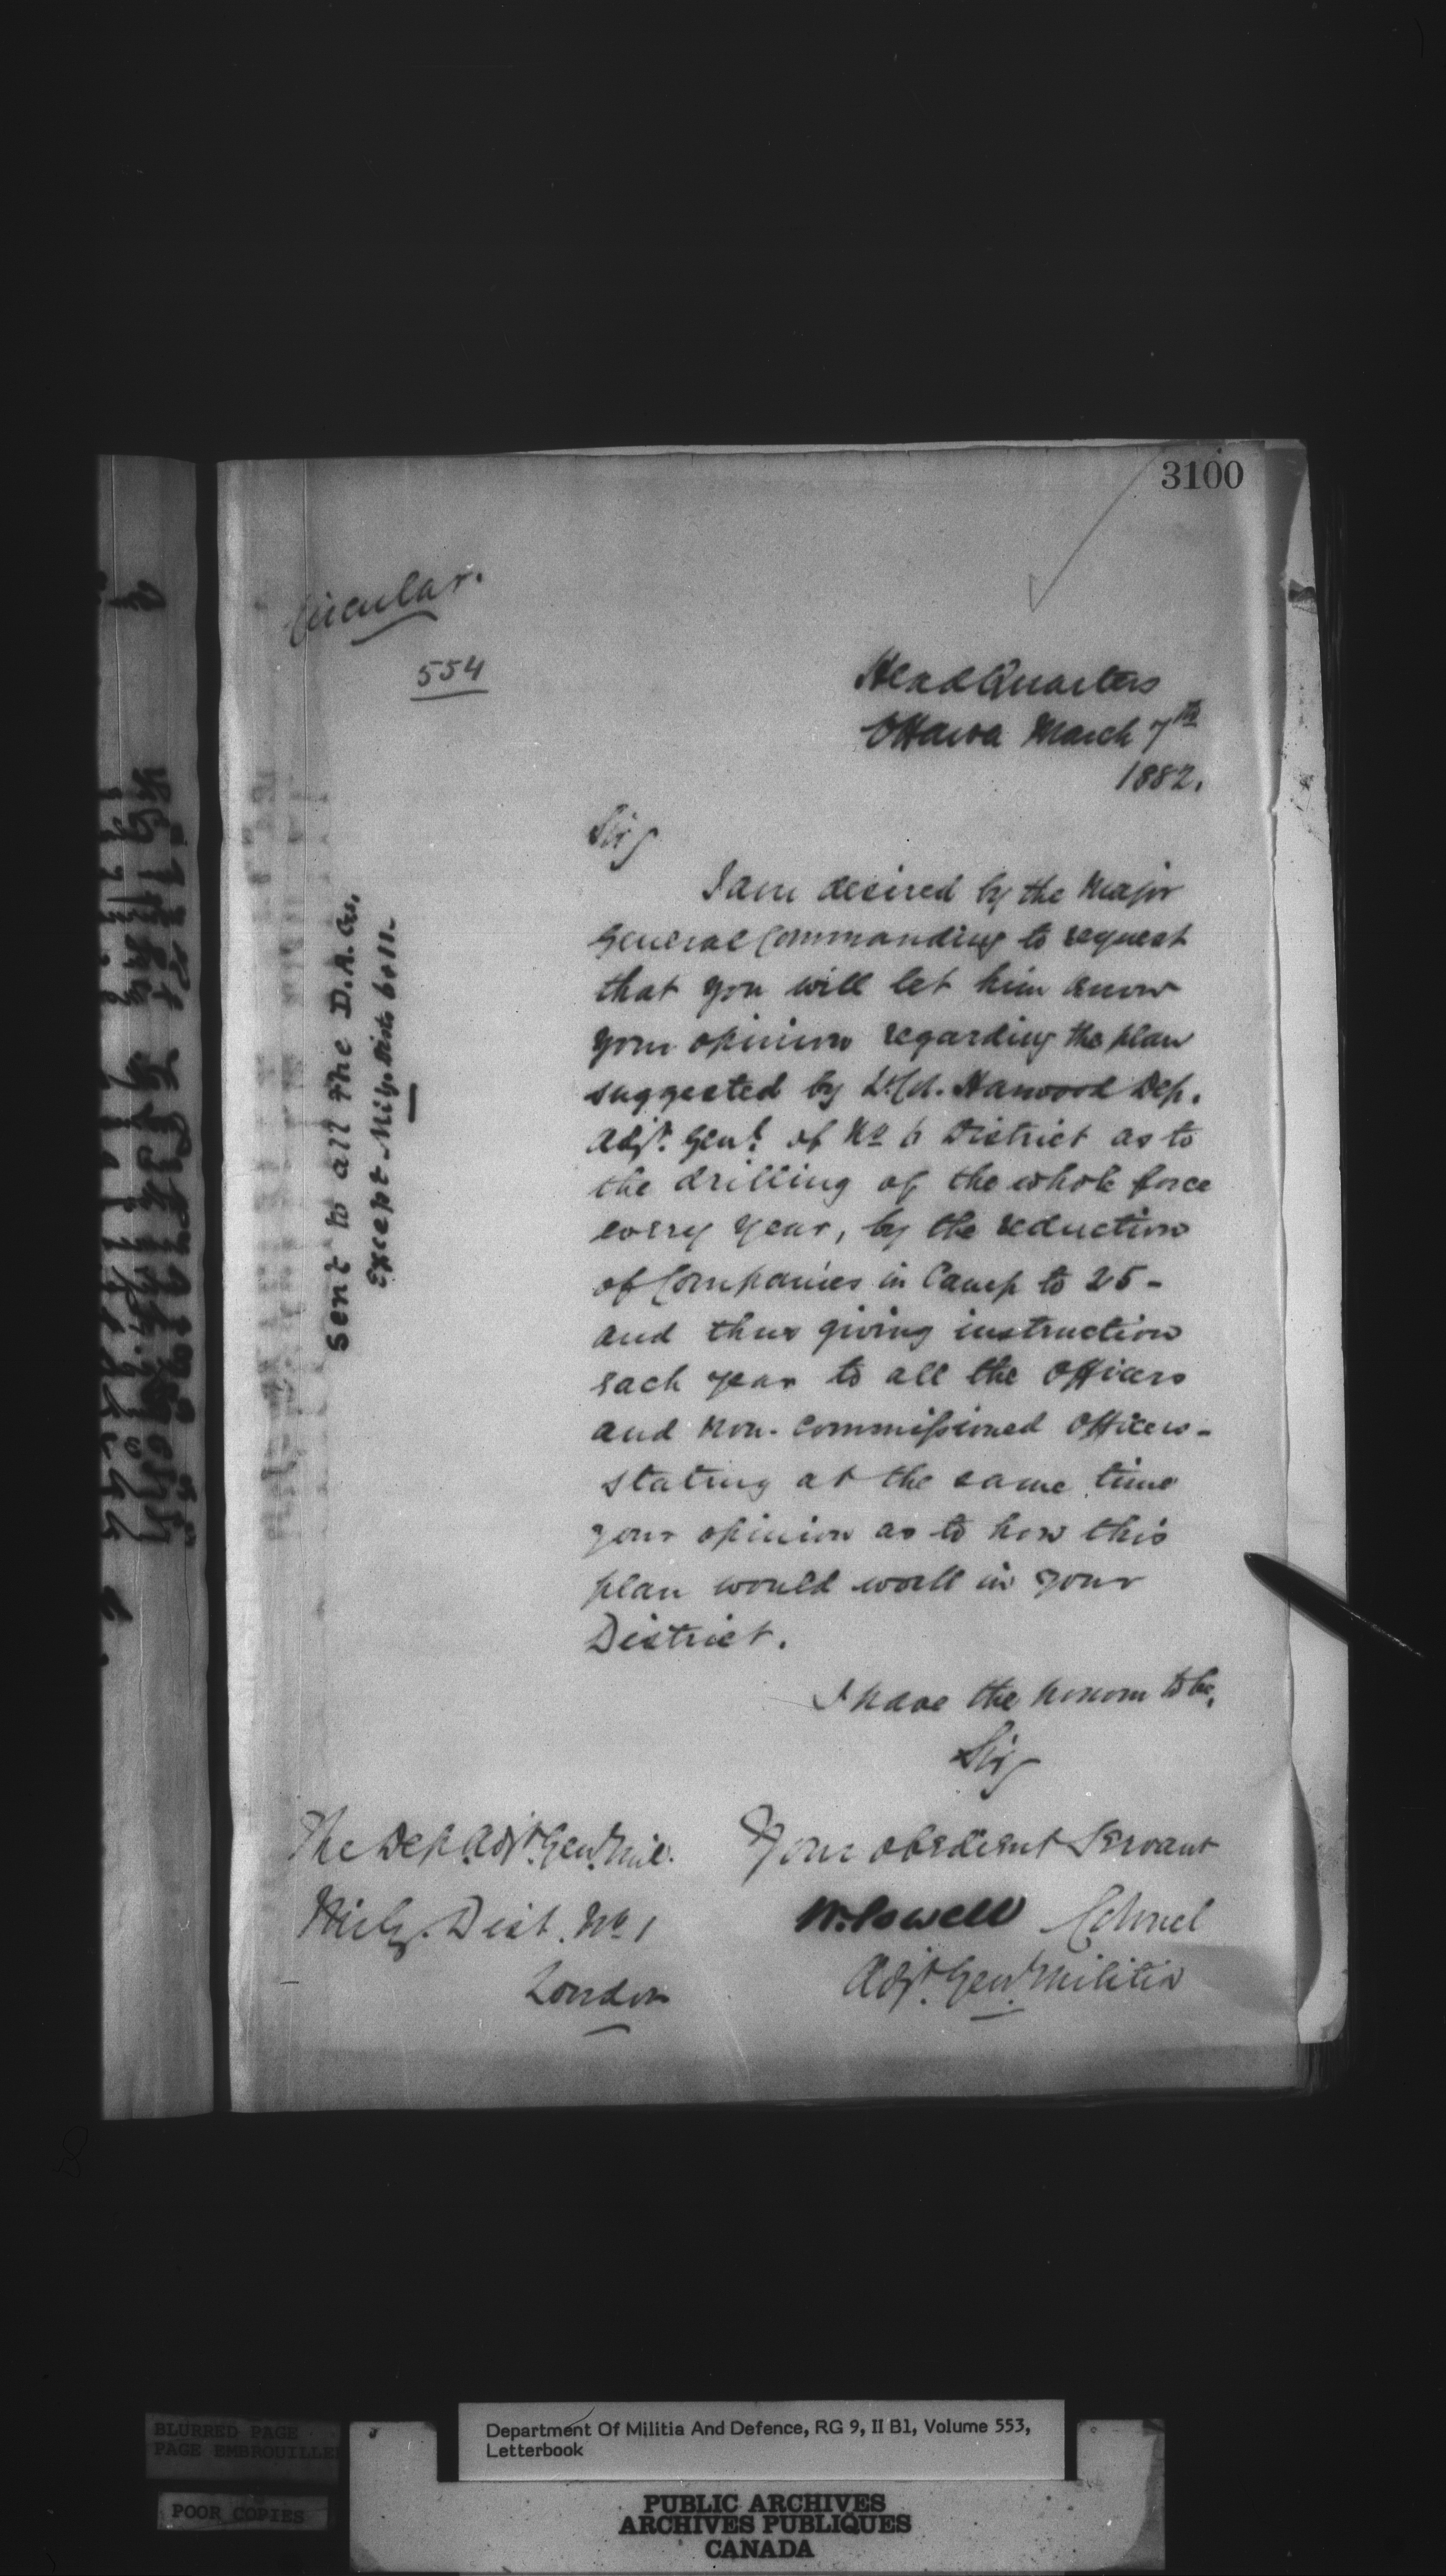 3100
Circular.
554
Head Quarters
Ottawa March 7th
1882.
Sir,
I am desired by the Major
General Commanding to request
that you will let him know
your opinion regarding the plan
suggested by Lt. Col. Harwood Dep.
Adjt. Genl. of No 6 District as to
the drilling of the whole force
every year, by the reduction
of Companies in Camp to 25 -
and thus giving instruction
each year to all the Officers
and Non-Commissioned Officers -
stating at the same time
your opinion as to how this
plan would work in your
District.
I have the honour to be,
Sir,
Your obedient Servant
W. Powell Colonel
Adjt. Genl. Militia
The Dep. Adjt. Genl. Mil.
Mily. Dist. No 1
London
Sent to all the D.A.Gs.
Except Mily. Dists 6 & 11.
BLURRED PAGE
PAGE EMBROUILLEE
POOR COPIES
Department Of Militia And Defence, RG 9, II B1, Volume 553,
Letterbook
PUBLIC ARCHIVES
ARCHIVES PUBLIQUES
CANADA